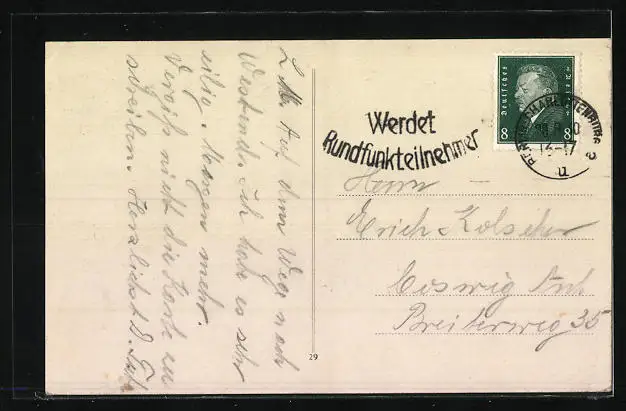 L. M. Auf dem Weg nach
Westend. Ich habe es sehr
eilig. Morgen mehr.
Vergiß nicht die Karte zu
schreiben. Herzlichst D.
Werdet
Rundfunkteilnehmer
Deutsches Reich
8 8
BERLIN-CHARLOTTENBURG
16-17
u
Herrn –
Erich Kolscher
Coswig Anh
Breiterweg 35
29